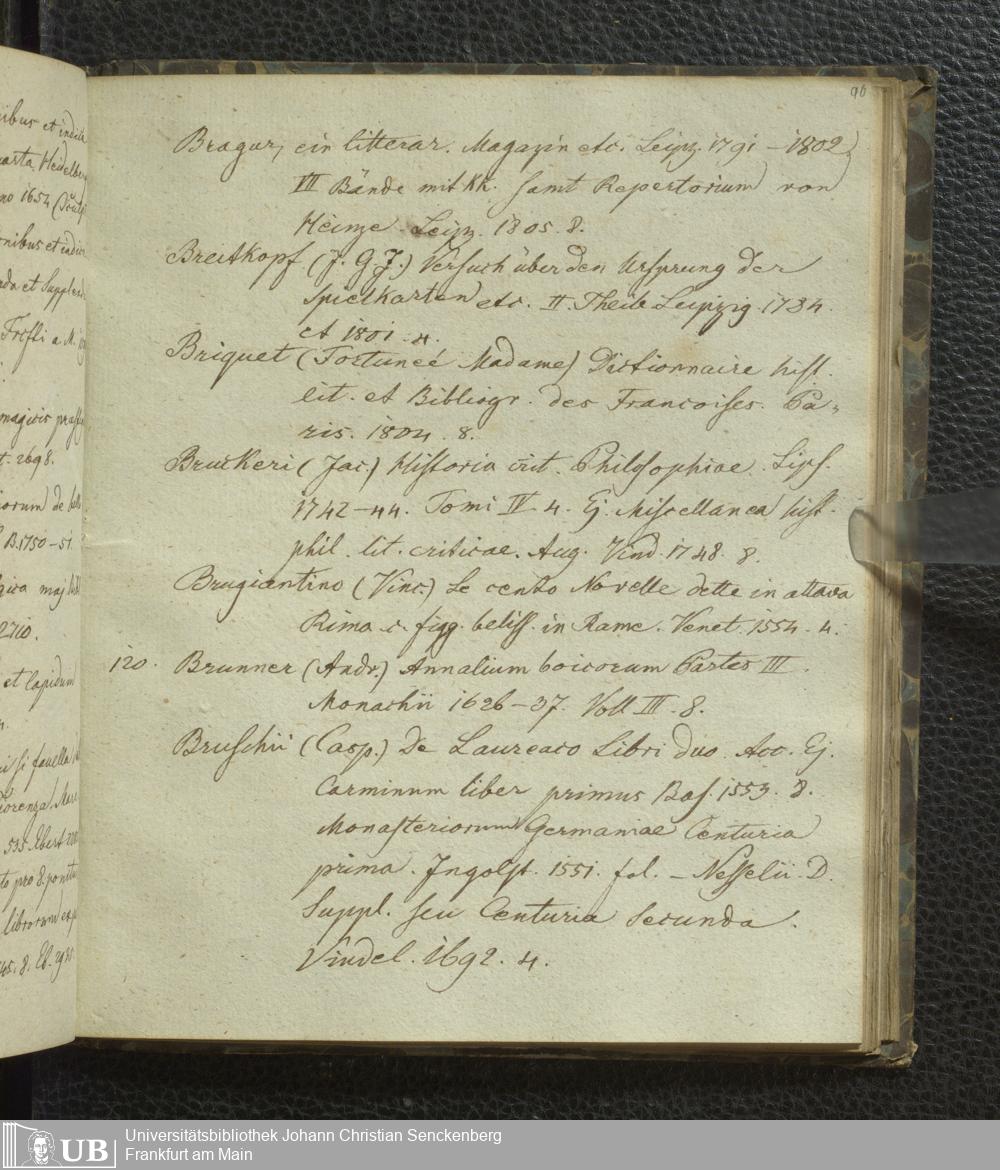 96
Bragur, ein litterar. Magazin etc. Leipz. 1791 – 1802
Bände mit Kk. samt Repertorium von
Heinze. Leipz. 1805. 8.
Breitkopf (J. G. J.) Versuch über den Ursprung der
Spielkarten etc. II. Theile Leipzig. 1784
et 1801. 4.
Briquet (Fortuneé Madame) Dictionnaire hist.
lit. et Bibliogr. des Francoises. Pa-
ris. 1804. 8.
Bruckeri (Jac.) Historia crit. Philosophiae. Lips.
1742–44. Tomi IV. 4. Ej. Miscellanea hist.
phil. lit. criticae. Aug. Vind. 1748. 8.
Brugiantino (Vinc.) Le cento Novelle dette in ottava
Rima c. figg. beliss. in Rame. Venet. 1554. 4.
120. Brunner (Andr.) Annalium boicorum Partes III.
Monachii 1626–37. Voll III. 8.
Bruschii (Casp.) De Laureaco Libri duo. Acc. Ej.
Carminum liber primus Bas. 1553. 8.
Monasteriorum Germaniae Centuria
prima. Ingolst. 1551. fol. – Nesselii. D.
Suppl. seu Centuria Secunda.
Vindel. 1692. 4.
ibus et
Heidelberg
no 1654
et Supplem
a M.
magicis
t. 2698.
iorum de
B. 1750–51.
maj
2710.
et lapidum
si favella
535. Ebert
to pro 8. ponitur
librorum
8. Eb.
UB
Universitätsbibliothek Johann Christian Senckenberg
Frankfurt am Main